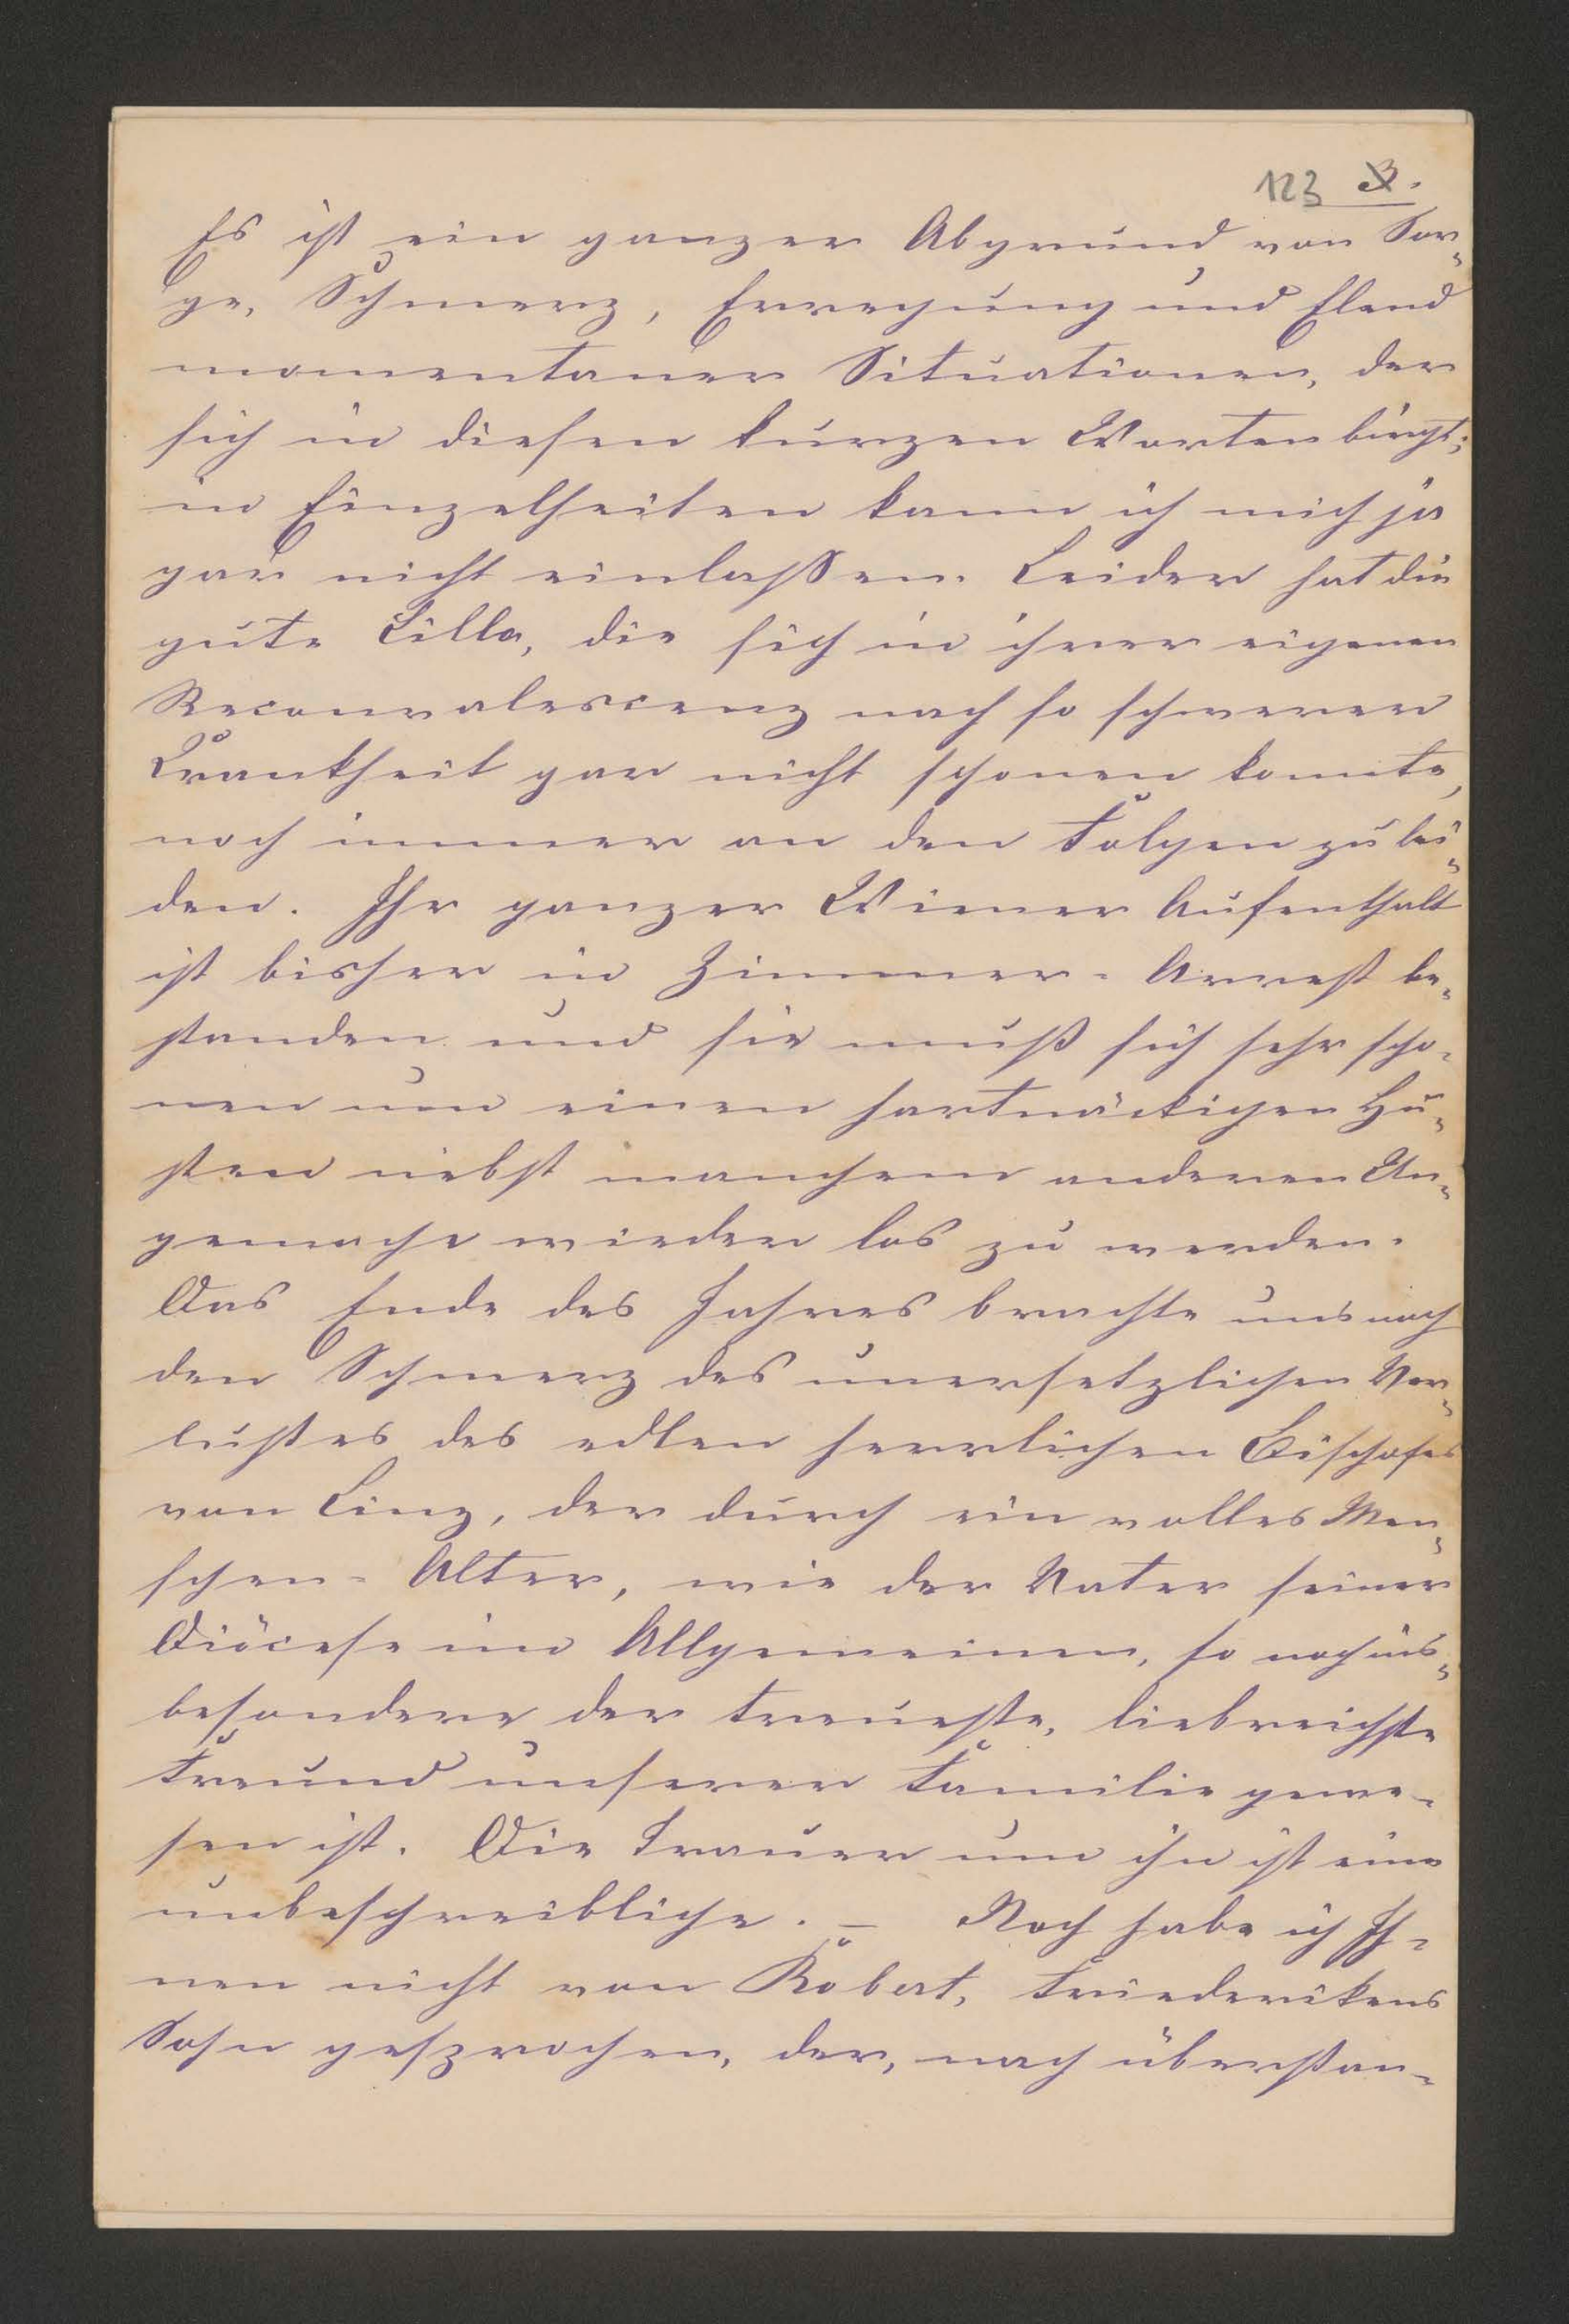 123 3.
Es ist ein ganzer Abgrund von Sor-
ge, Schmerz, Erregung und Elend
momentaner Situationen, der
sich in diesen kurzen Worten birgt;
in Einzelheiten kann ich mich ja
gar nicht einlassen. Leider hat die
gute Lilla, die sich in ihrer eigenen
Reconvalescenz nach so schwerer
Krankheit gar nicht schonen konnte,
noch immer an den Folgen zu lei-
den. Ihr ganzer Wiener Aufenthalt
ist bisher in Zimmer-Arrest be-
standen und sie muß sich sehr scho-
nen um einen hartnäckigen Hu-
sten nebst manchem anderen Un-
gemache wieder los zu werden.
Das Ende des Jahres brachte uns noch
den Schmerz des unersetzlichen Ver-
lustes des edlen herrlichen Bischofes
von Linz, der durch ein volles Men-
schen-Alter, wie der Vater seiner
Diöcese im Allgemeinen, so noch ins-
besondere der treueste, liebreichste
Freund unserer Familie gewe-
sen ist. Die Trauer um ihn ist eine
unbeschreibliche. – Noch habe ich Ih-
nen nicht von Robert, Friederikens
Sohn gesprochen, der, nach überstan-